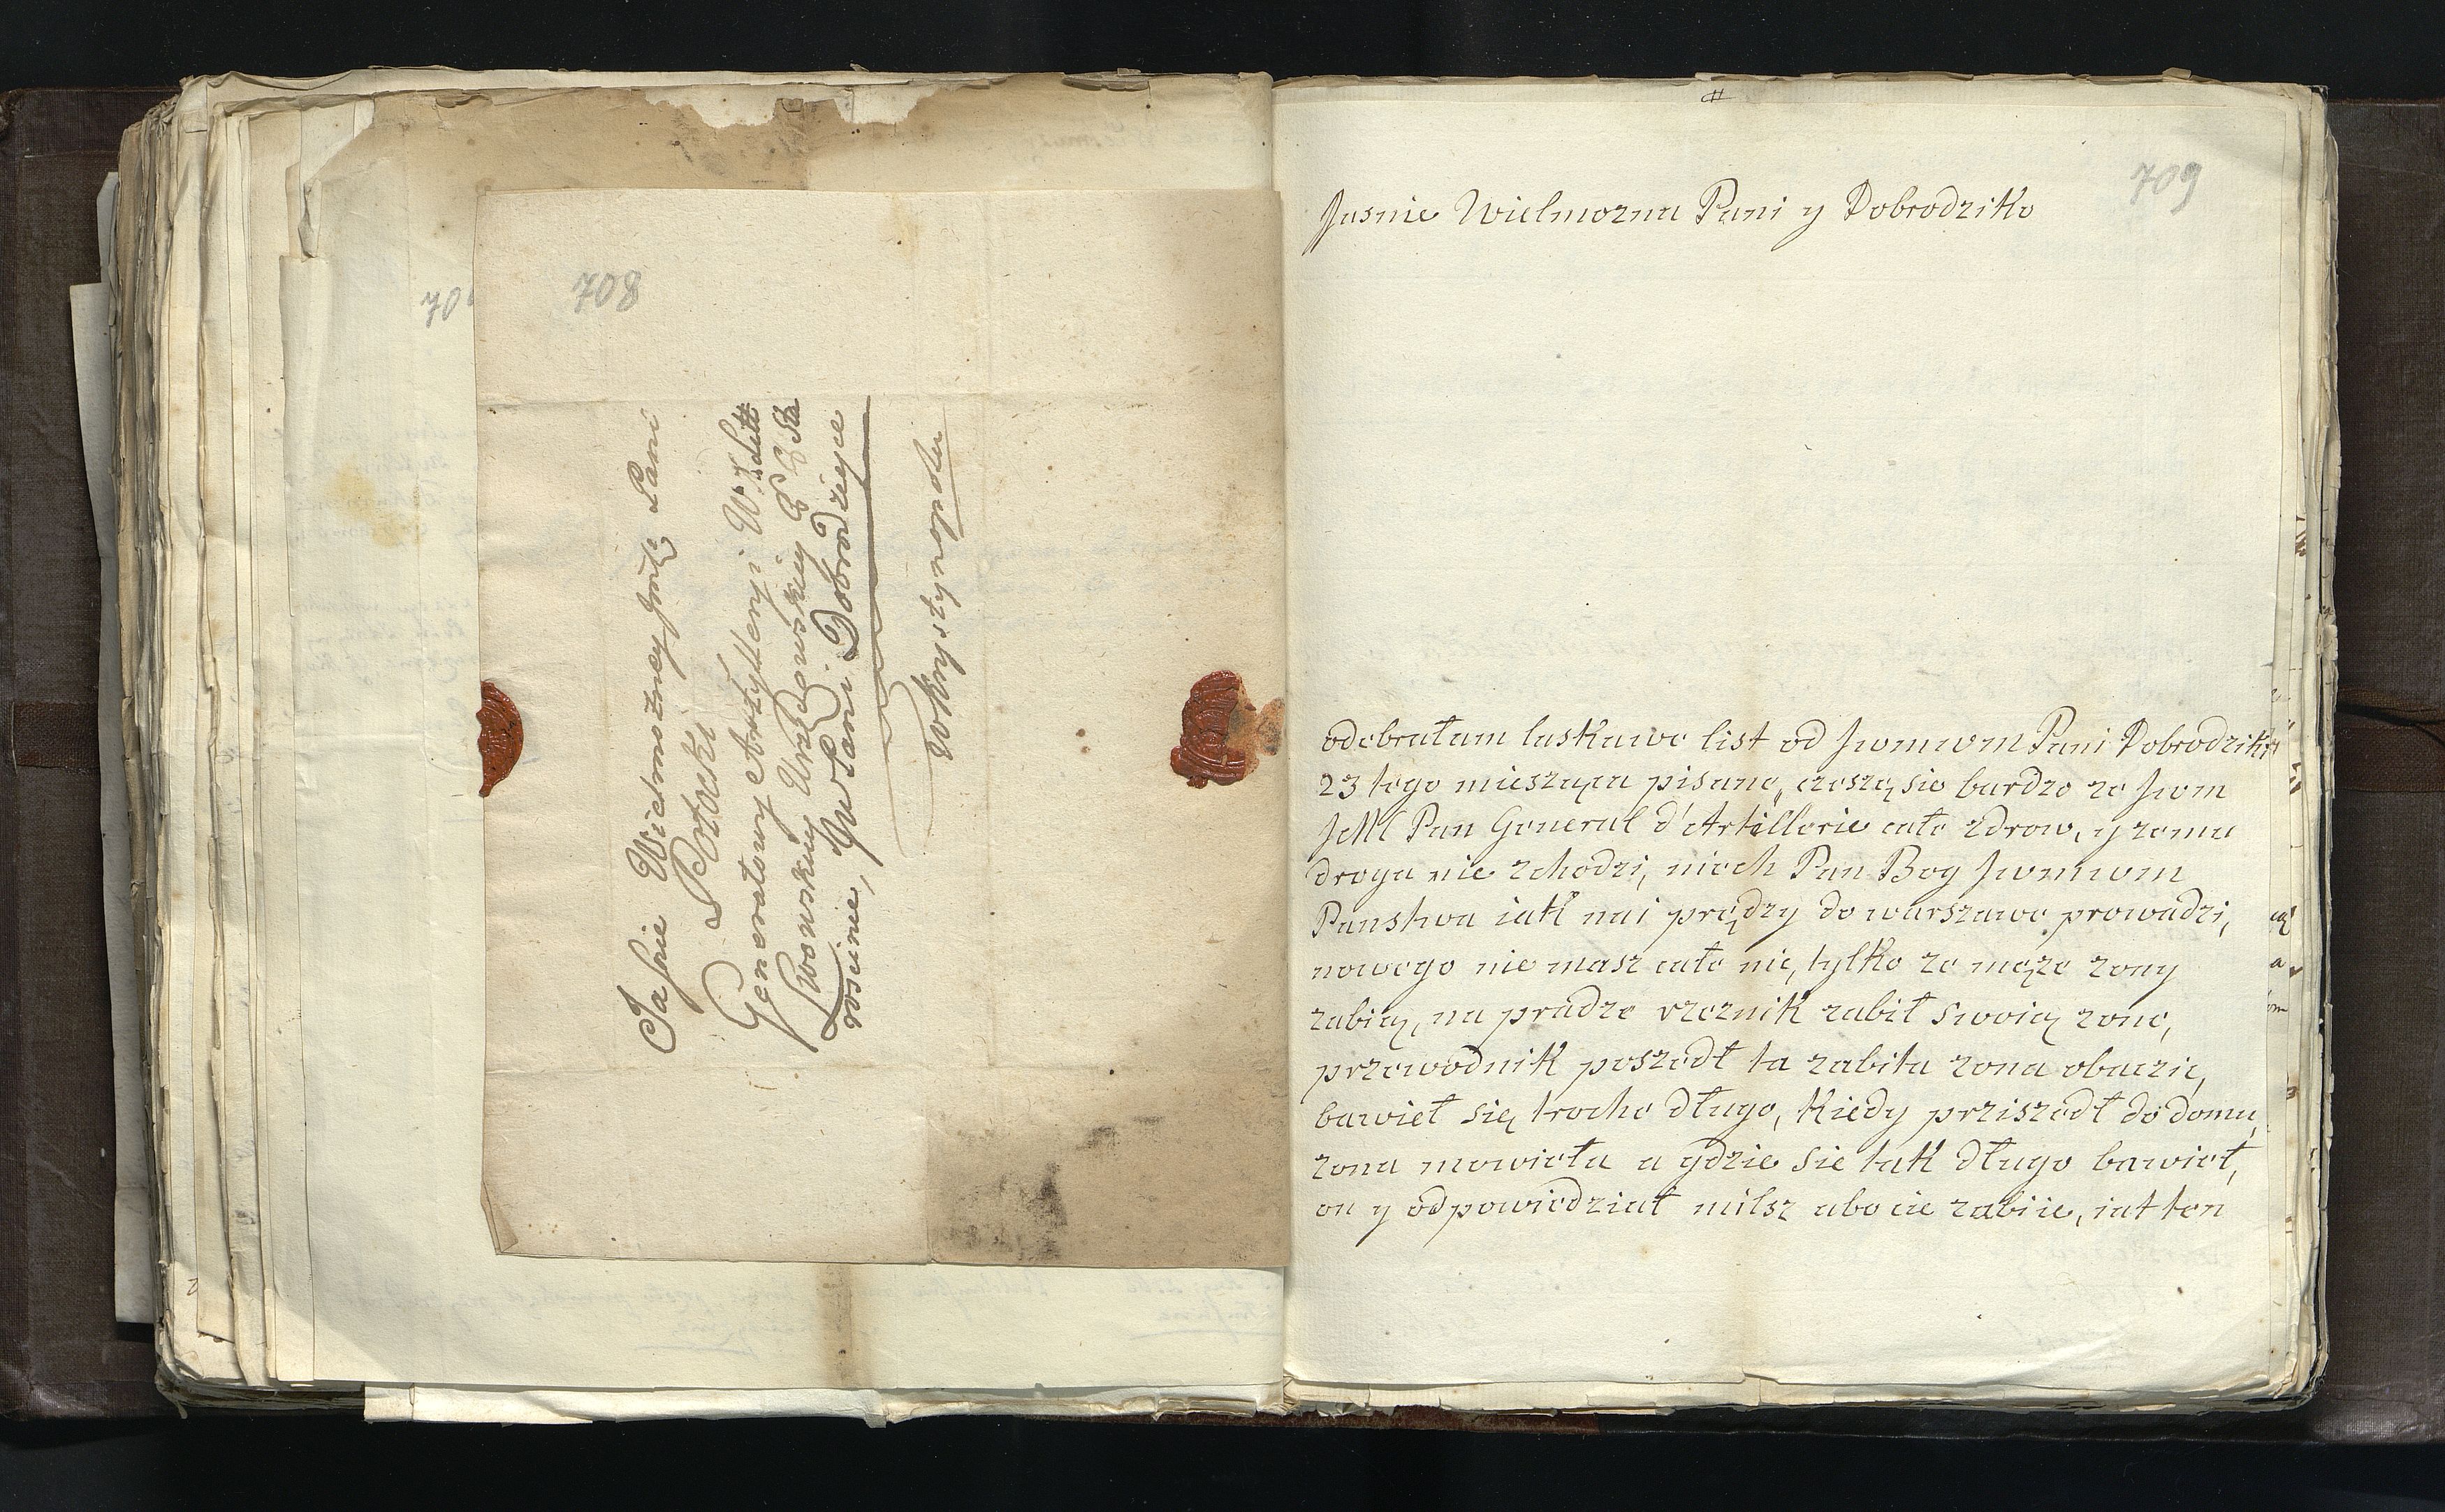 708
Jaśnie Wielmozney Jmći Pani
Potocki
Generałowy Artylleryi W. X. Litt
Lwowskiey Urzędowskiey
rosinie, JW Pani Dobrodzieyce
w Krystynopolu
70
709
Jasnie Wielmozna Pani y Dobrodziko
odebrałam laskawe list od Jwmwm Pani Dobrodziki
23 tego miesząca pisane, czeszę sie bardzo ze Jwm
JMC Pan General d'Artillerie całe zdrow, y zemu
droga nie zchodzi, niech Pan Bog Jwmwm
Panstwa iak nai prędzy do warszawe prowadzi,
nowego nie masz całe nic, tylko ze męze zony
zabią, na pradze rzeznik zabił swoią zone,
przewodnik poszedł ta zabita zona obaczic,
bawieł się troche długo, kiedy prziszedł do domu,
zona mowieła a gdzie sie tak długo bawieł,
on y odpowiedział milsz abo cie zabiie, iak ten